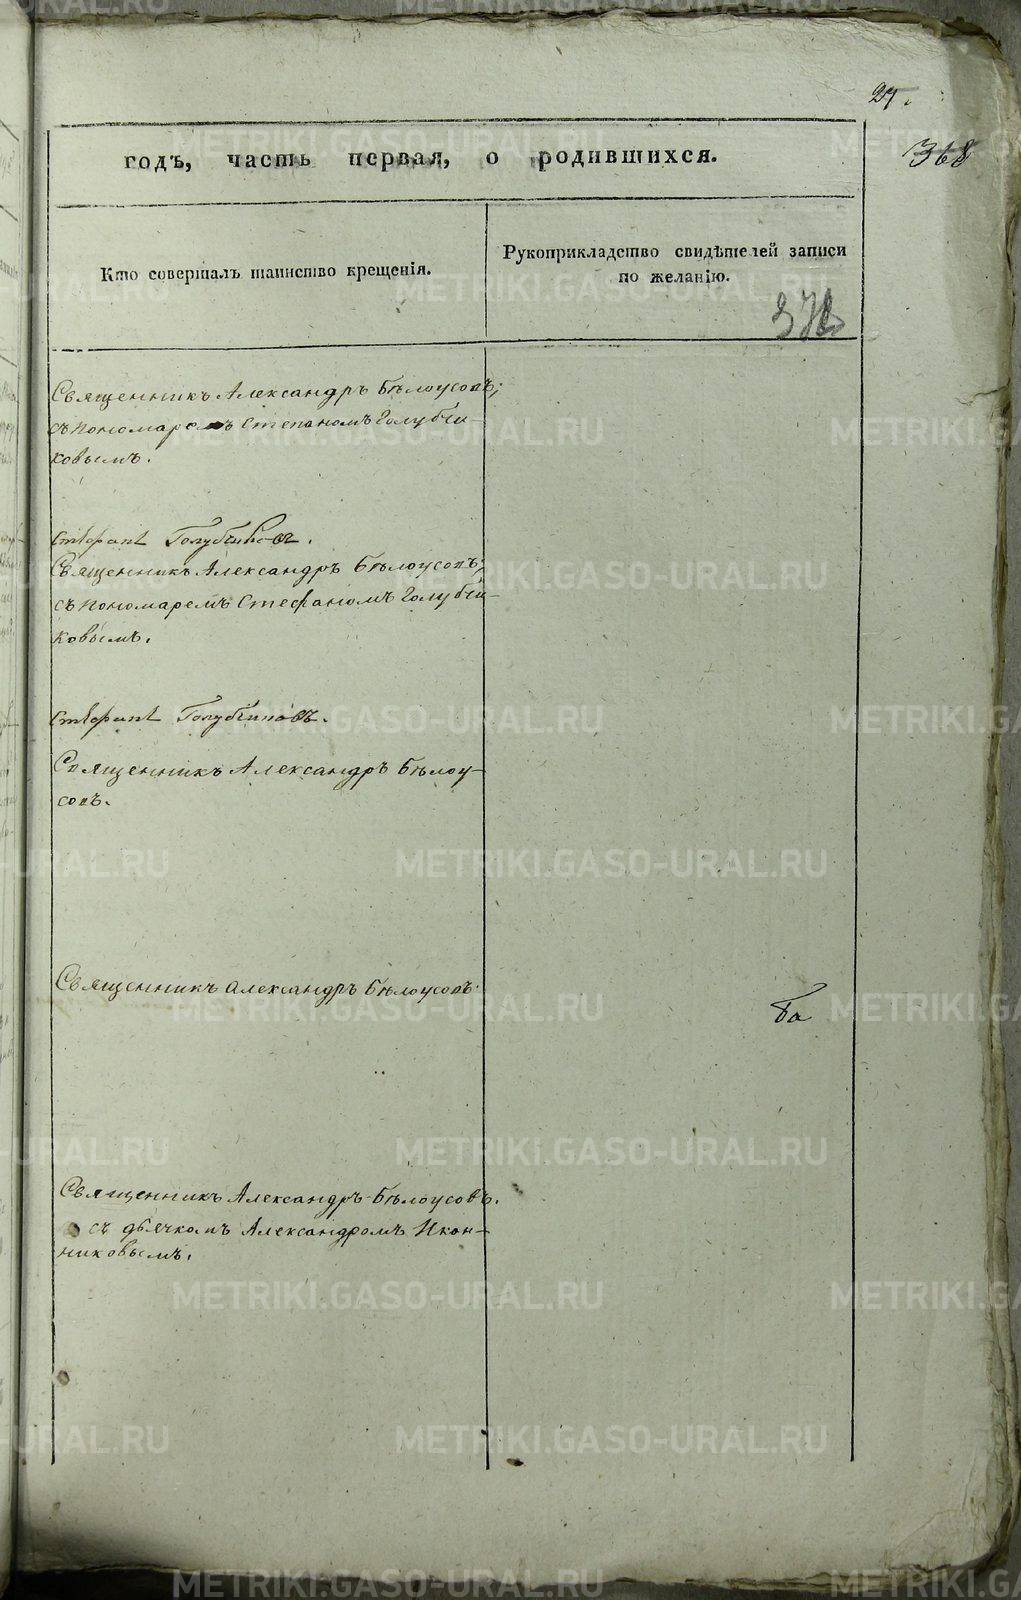 27.
368
годъ, часть первая, о родившихся.
Кто совершалъ таинство крещенія.
Рукоприкладство свидѣтелей записи
по желанію.
Священникъ Александръ Бѣлоусовъ;
съ пономаремъ Степаномъ Голубчи-
ковымъ.
Голубчиковъ.
Священникъ Александръ Бѣлоусовъ;
съ пономаремъ Стефаномъ Голубчи-
ковымъ.
Голубчиковъ.
Священникъ Александръ Бѣлоу-
совъ.
Священникъ Александръ Бѣлоусовъ.
Священникъ Александръ Бѣлоусовъ.
съ дьячкомъ Александромъ Икон-
никовымъ.
METRIKI.GASO-URAL.RU